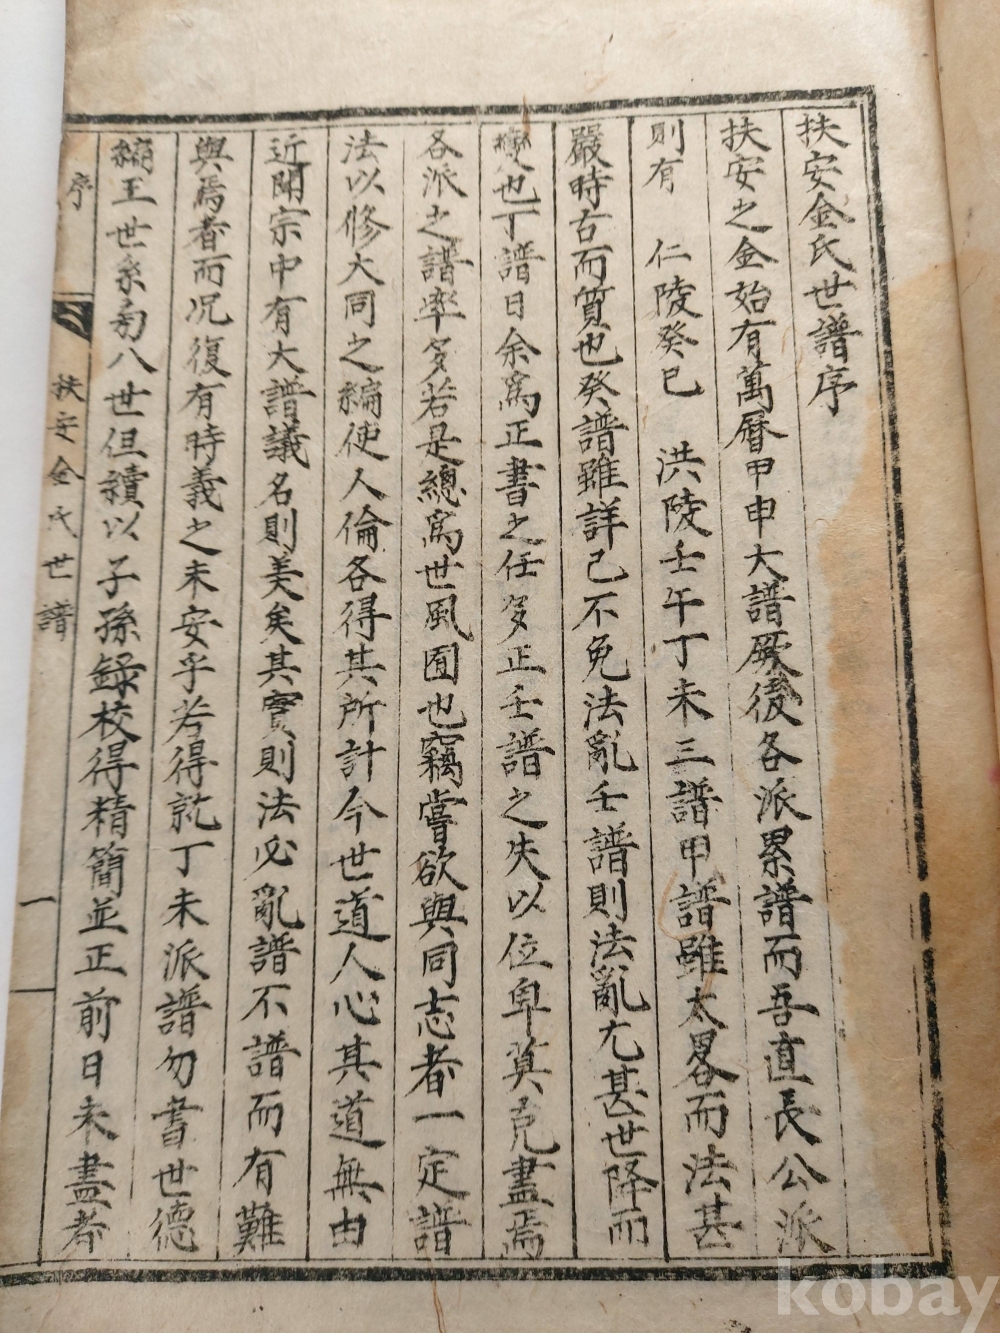 扶安金氏世譜序
扶安之金始有萬曆甲申大譜厥後各派累譜而吾直長公派
則有 仁陵癸巳 洪陵壬午丁未三譜甲譜雖太畧而法甚
嚴時古而質也癸譜雖詳已不免法亂壬譜則法亂尤甚世降而
變也丁譜日余爲正書之任多正壬譜之失以位卑莫克盡焉
各派之譜率多若是總爲世風囿也竊嘗欲與同志者一定譜
法以修大同之編使人倫各得其所計今世道人心其道無由
近聞宗中有大譜議名則美矣其實則法必亂譜不譜而有難
與焉者而况復有時義之未安乎若得就丁未派譜勿書世德
編王世系勇八世但續以子孫錄校得精簡並正前日未盡者
序 扶安金氏世譜 一
kobay